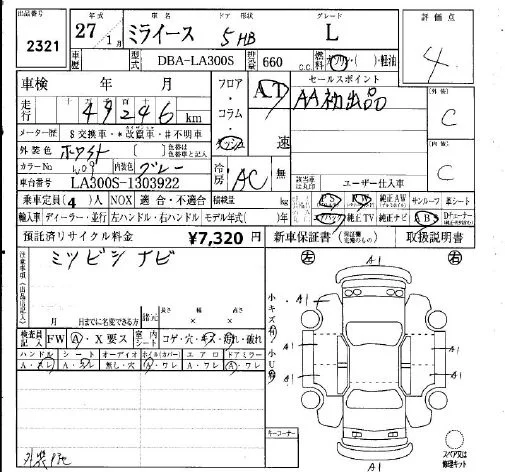 出品番号 2321
平成 27年 1月
車名 ミライース
ドア 形状 5HB
グレード L
評価点 4
車歴
型式 DBA-LA300S
排気量 660 c.c.
燃料 ガソリン・( )・軽油
車検 年 月
フロア・コラム・
AT
セールスポイント
AA初出品
走行 49246 km
外装 C
メーター歴 $交換車・*改竄車・#不明車
速
外装色 ホワイト
色替車 元色( )色 色替車と記入
内装 C
カラーNo W09
内装色 グレー
冷房 AC
無
ユーザー仕入車
車台番号 LA300S-1303922
乗車定員(4)人 NOX 適合・不適合 積載量 kg
PS PW 純正AW サンルーフ 革シート
輸入車 ディーラー・並行 左ハンドル・右ハンドル モデル年式( )年
エアバック 純正TV 純正ナビ AB
預託済リサイクル料金 ¥7,320 円
新車保証書 取扱説明書
注意事項
ミツビシナビ
左 A1 右
小キズ 小U
月 日までに名変できる方
諸元 長さ × 幅 × 高さ
検査員記入 FW A・X要ス 室内 シート コゲ・穴・キズ・汚れ・破れ
ハンドル シート オーディオ ホイル(カバー) エアロ ドアミラー
A・スレ A・スレ 無し・穴 A・ワレ A・ワレ A・ワレ
A1 A1
A1 A1
キーコーナー
A1
スペア又は修理キット